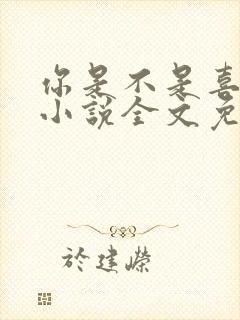 你是不是喜
小说全文免
於建嶸